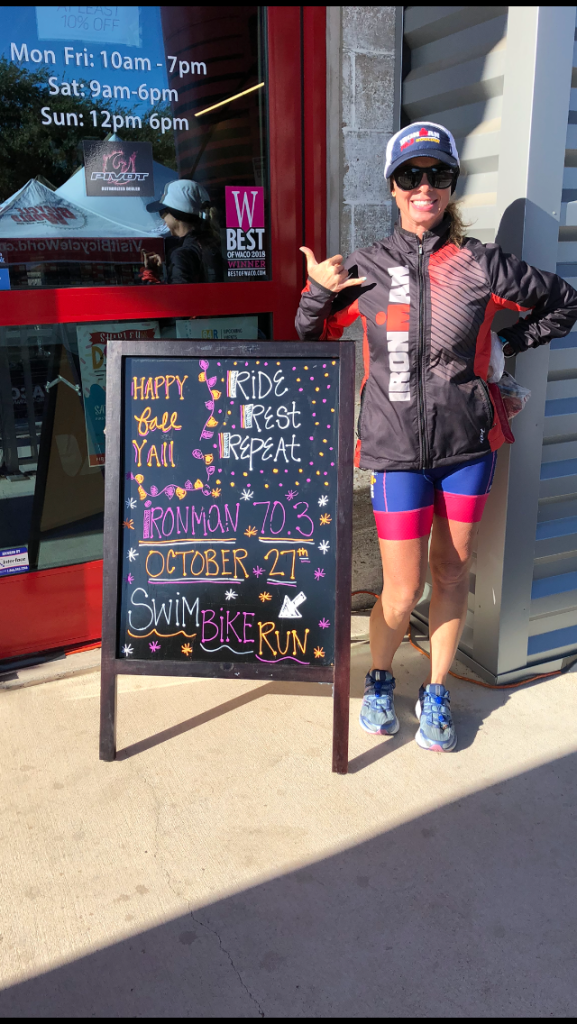 AT LEAST
10% OFF
Mon Fri: 10am - 7pm
Sat: 9am-6pm
Sun: 12pm 6pm
PIVOT
AUTHORIZED DEALER
VisitBicycleWorld.c
W
BEST
OF WACO 2018
WINNER
BESTOFWACO.COM
IRONMAN
IRONMAN
HAPPY
fall
Y'All
RIDE
REST
REPEAT
IRONMAN 70.3
OCTOBER 27th
SWIM BIKE RUN